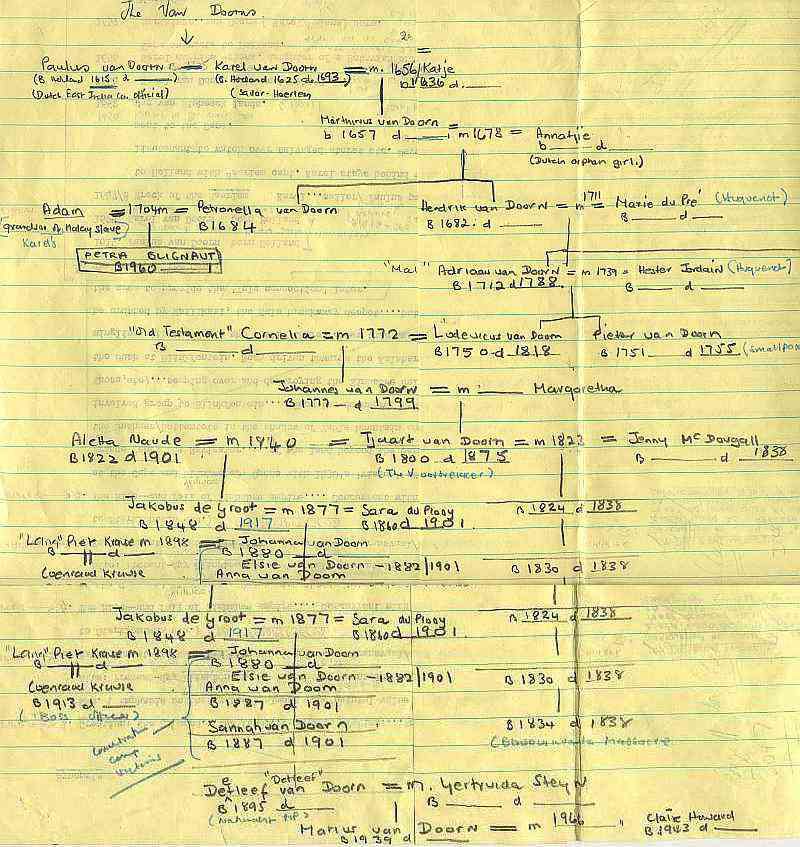 The Van Doorns.
2.
Paulus van Doorn = Karel van Doorn = m. 1656/Katje
(B Holland 1615. d ____) (B. Holland 1625 d. 1693) b 1636 d. ____
(Dutch East India Co. official) (Sailor - Haerlem
Marthinius van Doorn =
b 1657 d ____ m 1678 = Annatjie
b ____ d ____
(Dutch orphan girl.)
Adam = 1704m = Petronella van Doorn Hendrik van Doorn = m 1711 = Marie du Pré (Huguenot)
(grandson A. Malay slave) B 1684 B 1682. d ____ B ____ d ____
Karel's
PETRA BLIGNAUT
B1960
"Mal" Adriaan van Doorn = m 1739 = Hester Jordain (Huguenot)
B 1712 d 1788 B ____ d ____
"Old Testament" Cornelia = m 1772 = Lodewicus van Doorn Pieter van Doorn
B ____ d ____ B 1750 d 1818 B 1751 d 1755 (smallpox
Johannes van Doorn = m: ____ Margaretha
B 1777 d 1799
Aletta Naude = m 1840 = Tjaart van Doorn = m 1823 = Jenny McDougall
B 1822 d 1901 B 1800 d 1875 B ____ d 1838
(The Voortrekker)
Jakobus de Groot = m 1877 = Sara du Plooy B 1824 d 1838
B 1848 d 1917 B 1860 d 1901
"Lang" Piet Krause m 1898 = Johanna van Doorn
B ____ d ____ B 1880 d
Elsie van Doorn - 1882/1901 B 1830 d 1838
Coenraad Krause Anna van Doorn
Jakobus de Groot = m 1877 = Sara du Plooy B 1824 d 1838
B 1848 d 1917 B 1860 d 1901
"Lang" Piet Krause m 1898 = Johanna van Doorn
B ____ d ____ B 1880 d
Elsie van Doorn - 1882/1901 B 1830 d 1838
Coenraad Krause Anna van Doorn
B 1913 d ____ B 1887 d 1901
Sannah van Doorn B 1834 d 1838
B 1887 d 1901
concentration
camp
victims
Massacre
"Detleef"
Detleef van Doorn = m. Gertruida Steyn
B 1895 d ____ B ____ d ____
Marius van Doorn = m 1966 " Claire Howard
B 1939 d B 1943 d ____